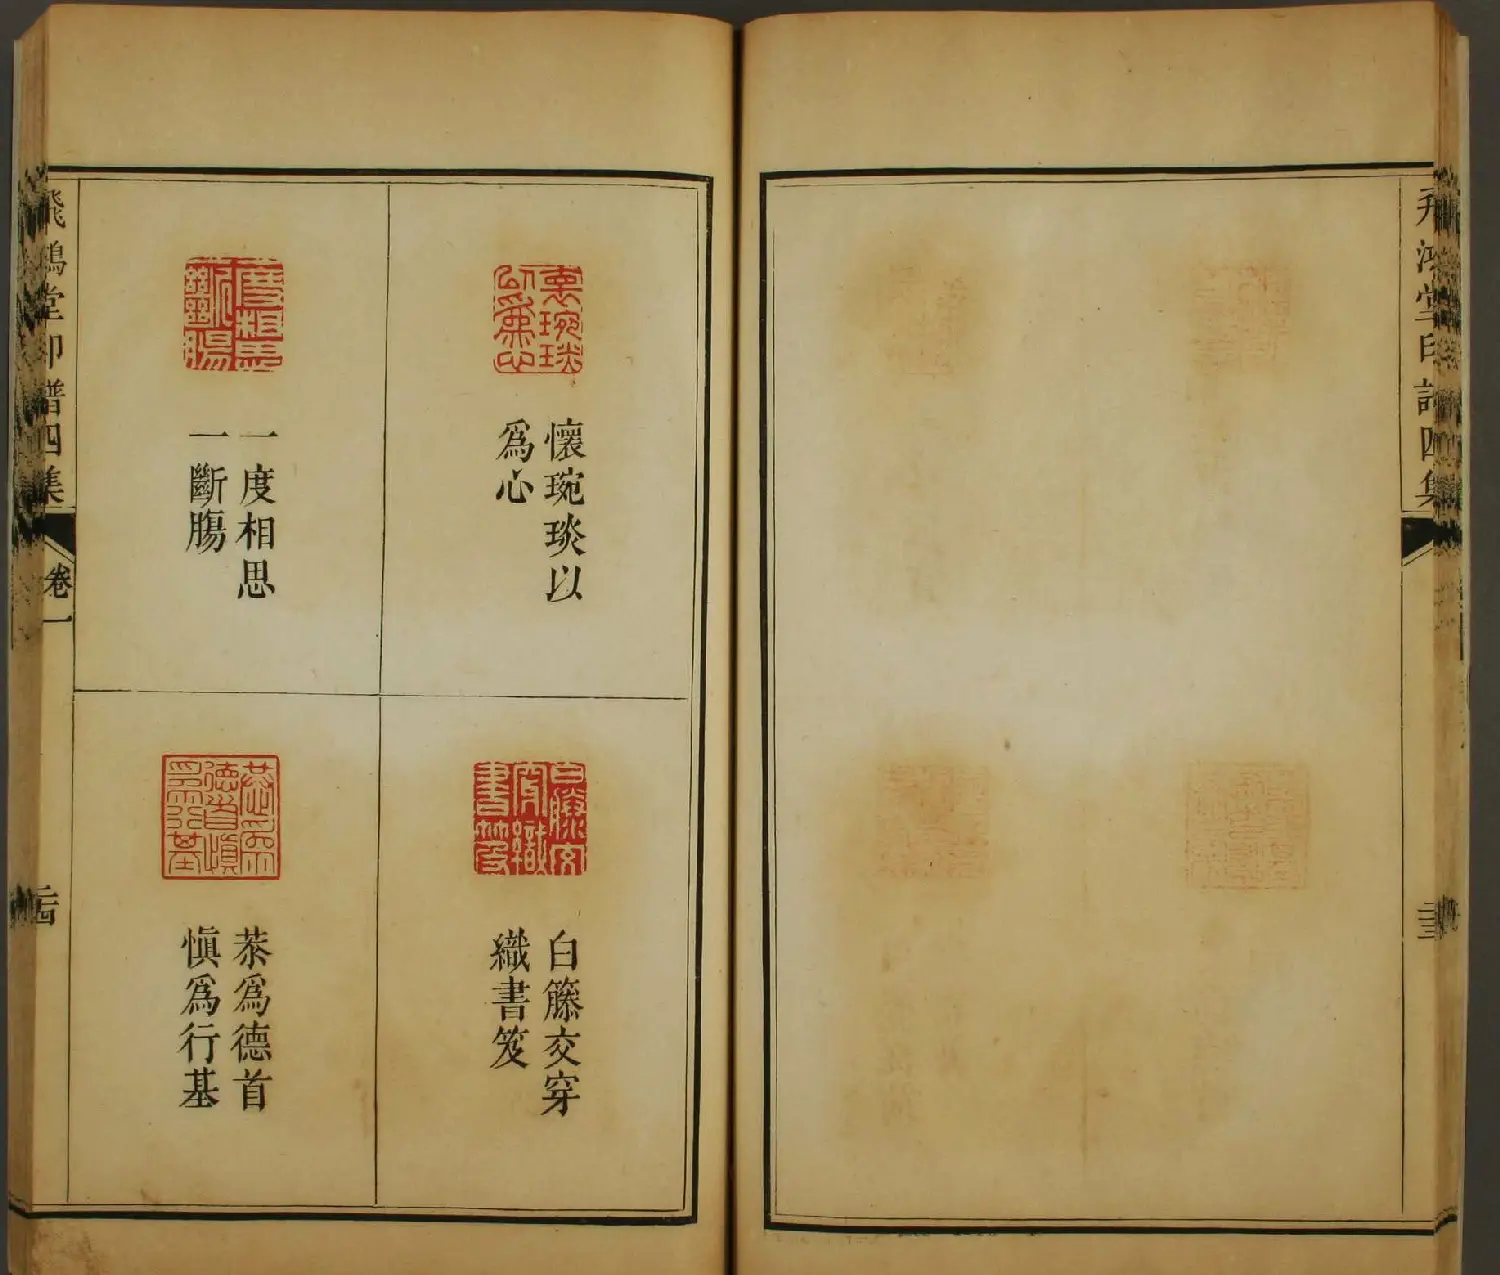 飛鴻堂印譜四集
懷琬琰以
爲心
一度相思
一斷腸
白籐交穿
織書笈
恭爲德首
慎爲行基
飛鴻堂印譜四集
卷一